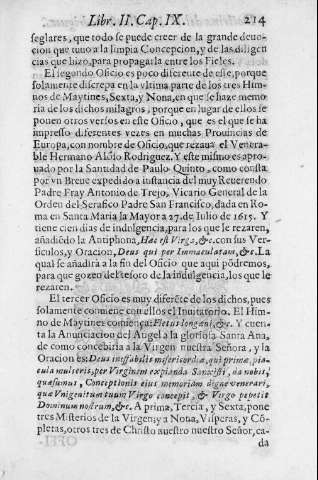 Libr. II. Cap. IX. 214
seglares, que todo se puede creer de la grande deuo-
cion que tuuo a la limpia Concepcion, y de las diligen
cias que hizo, para propagarla entre los Fieles.
El segundo Oficio es poco diferente de este, porque
solamente discrepa en la vltima parte de los tres Him
nos de Maytines, Sexta, y Nona, en que se haze memo
ria de los dichos milagros, porque en lugar de ellos se
ponen otros versos en este Oficio, que es el que se ha
impresso diferentes vezes en muchas Prouincias de
Europa, con nombre de Oficio, que rezaua el Venera-
ble Hermano Alõso Rodriguez. Y este mismo es apro-
uado por la Santidad de Paulo Quinto, como consta
por vn Breue expedido a instancia del muy Reuerendo
Padre Fray Antonio de Trejo, Vicario General de la
Orden del Serafico Padre San Francisco, dada en Ro-
ma en Santa Maria la Mayor a 27. de Iulio de 1615. Y
tiene cien dias de indulgencia, para los que le rezaren,
añadiēdo la Antiphona, Hæc est Virga, &c. con sus Ver-
siculos, y Oracion, Deus qui per Immaculatam, &c. La
qual se añadirà a la fin del Oficio que aqui põdremos,
para que gozen del tesoro de la indulgencia, los que le
rezaren.
El tercer Oficio es muy diferēte de los dichos, pues
solamente conuiene con ellos el Inuitatorio. El Him-
no de Maytines comiença: Fletus longani, &c. Y cuen-
ta la Anunciacion del Angel a la gloriosa Santa Ana,
de como concebiria a la Virgen nuestra Señora, y la
Oracion es: Deus ineffabilis misericordiæ, qui primæ, pia-
cula mulieris, per Virginem expianda Sanxisti, da nobis,
quæsumus, Conceptionis eius memoriam digne venerari,
quæ Vnigenitum tuum Virgo concepit, & Virgo peperit
Dominum nostrum, &c. A prima, Tercia, y Sexta, pone
tres Misterios de la Virgen; y a Nona, Visperas, y Cõ-
pletas, otros tres de Christo nuestro nuestro Señor, ca-
da